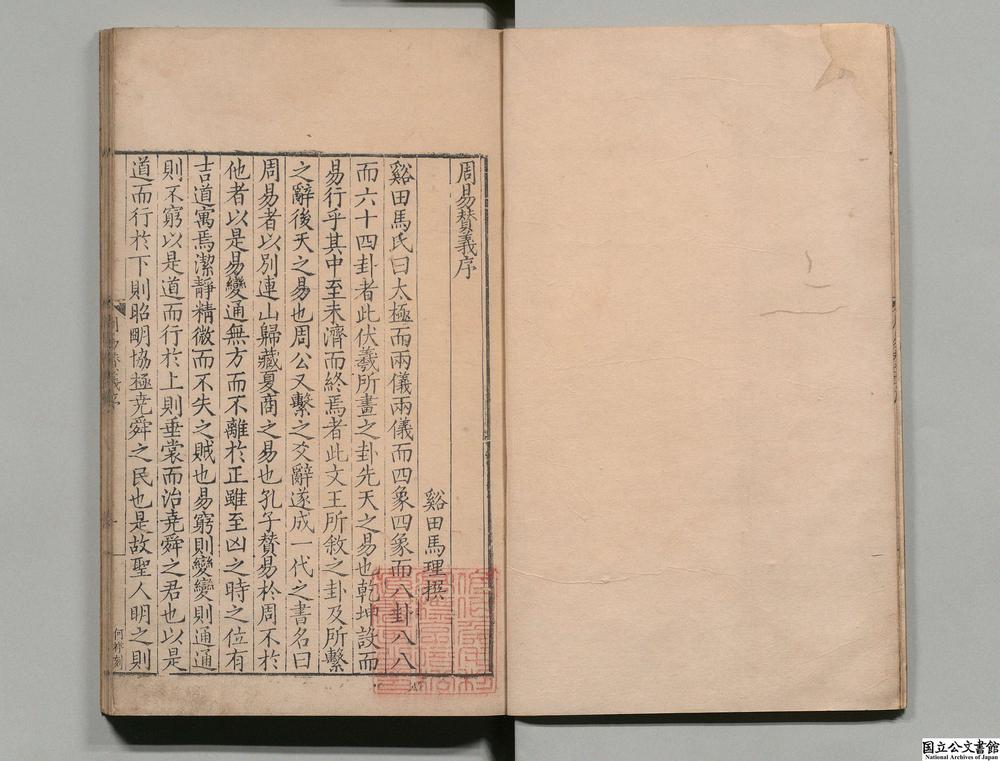 周易賛義序
谿田馬理撰
谿田馬氏曰太極而兩儀兩儀而四象四象而八卦八八
而六十四卦者此伏羲所畫之卦先天之易也乾坤設而
易行乎其中至未濟而終焉者此文王所敘之卦及所繫
之辭後天之易也周公又繫之爻辭遂成一代之書名曰
周易者以別連山歸藏夏商之易也孔子賛易於周不於
他者以是易變通無方而不離於正雖至凶之時之位有
吉道寓焉潔靜精微而不失之賊也易窮則變變則通通
則不窮以是道而行於上則垂裳而治堯舜之君也以是
道而行於下則昭明協極堯舜之民也是故聖人明之則
何祥刻
国立公文書館
National Archives of Japan